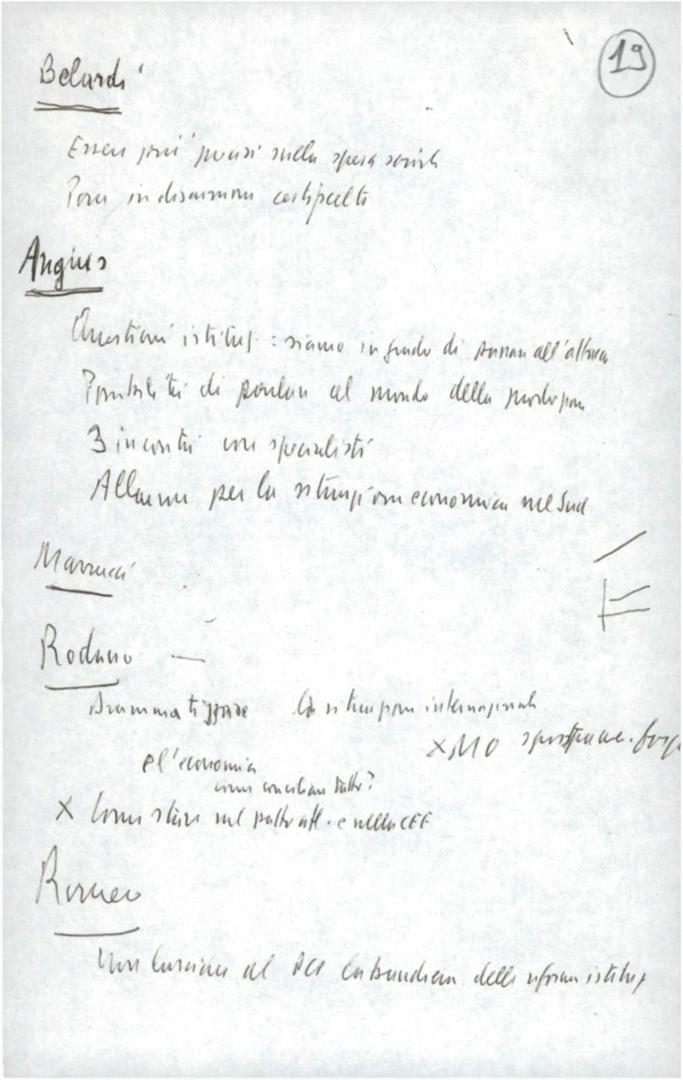 19
Belardi
Essere più precisi sulla spesa sociale
Porre in discussione
Angius
Questioni istituz : siamo in grado di passare all'attacco
Possibilità di parlare al mondo della produzione
3 incontri con specialisti
Allarme per la situazione economica nel Sud
Marrucci
Rodano —
Drammatizzare la situazione internazionale
x MO
e l'economia
come conciliare tutto?
x Come stare nel patto atl. e nella CEE
Romeo
Non lasciare al PCI la bandiera delle riforme istituz